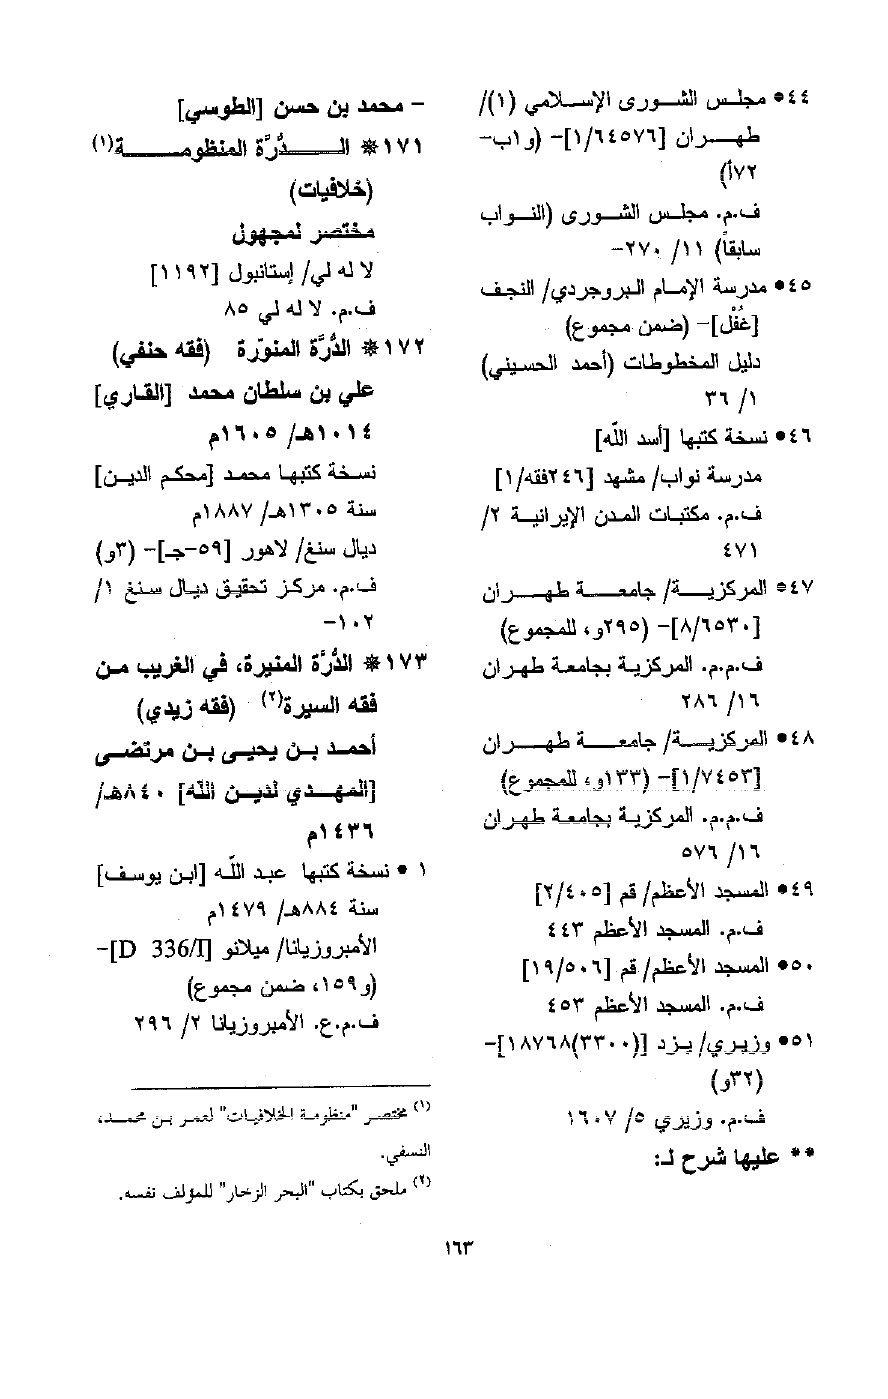 ٤٤* مجلس الشورى الإسلامي (١)/
طهران [١/٦٤٥٧٦]- (و١ب-
٧٢أ)
ف.م. مجلس الشورى (النواب
سابقاً) ١١/ ٢٧٠-
٤٥• مدرسة الإمام البروجردي/ النجف
[غُفْل]- (ضمن مجموع)
دليل المخطوطات (أحمد الحسيني)
١/ ٣٦
٤٦• نسخة كتبها [أسد الله]
مدرسة نواب/ مشهد [٢٤٦فقه/١]
ف.م. مكتبات المدن الإيرانية ٢/
٤٧١
٤٧* المركزية/ جامعة طهران
[٨/٦٥٣٠]- (٢٩٥و، للمجموع)
ف.م.م. المركزية بجامعة طهران
١٦/ ٢٨٦
٤٨• المركزية/ جامعة طهران
[١/٧٤٥٣]- (١٣٣و، للمجموع)
ف.م.م. المركزية بجامعة طهران
١٦/ ٥٧٦
٤٩• المسجد الأعظم/ قم [٢/٤٠٥]
ف.م. المسجد الأعظم ٤٤٣
٥٠• المسجد الأعظم/ قم [١٩/٥٠٦]
ف.م. المسجد الأعظم ٤٥٣
٥١• وزيري/ يزد [(٣٣٠٠)١٨٧٦٨]-
(٣٢و)
ف.م. وزيري ٥/ ١٦٠٧
** عليها شرح لـ:
- محمد بن حسن [الطوسي]
١٧١* الدُّرَّة المنظومة(١)
(خلافيات)
مختصر لمجهول
لا له لي/ إستانبول [١١٩٢]
ف.م. لا له لي ٨٥
١٧٢* الدُّرَّة المنورّة (فقه حنفي)
علي بن سلطان محمد [القاري]
١٠١٤هـ/ ١٦٠٥م
نسخة كتبها محمد [محكم الدين]
سنة ١٣٠٥هـ/ ١٨٨٧م
ديال سنغ/ لاهور [٥٩-جـ]- (٣و)
ف.م. مركز تحقيق ديال سنغ ١/
١٠٢-
١٧٣* الدُّرَّة المنيرة، في الغريب من
فقه السيرة(٢) (فقه زيدي)
أحمد بن يحيى بن مرتضى
[المهدي لدين الله] ٨٤٠هـ/
١٤٣٦م
١ • نسخة كتبها عبد الله [ابن يوسف]
سنة ٨٨٤هـ/ ١٤٧٩م
الأمبروزيانا/ ميلانو [D 336/I]-
(و١٥٩، ضمن مجموع)
ف.م.ع. الأمبروزيانا ٢/ ٢٩٦
(١) مختصر "منظومة الخلافيات" لعمر بن محمد،
النسفي.
(٢) ملحق بكتاب "البحر الزخار" للمؤلف نفسه.
١٦٣